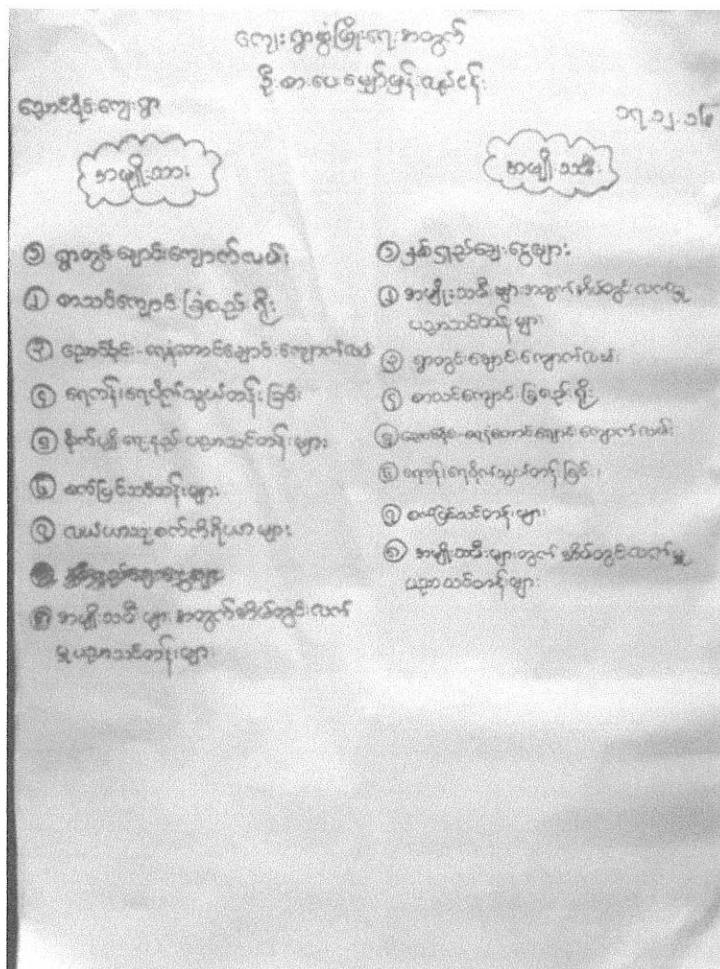 ကျေးရွာဖွံ့ဖြိုးရေးအတွက်
ဦးစားပေးမျှော်မှန်းလုပ်ငန်း
ညောင်ပိုင်ကျေးရွာ
၁၇.၁၂.၁၆
အမျိုးသား
၁ ရွာတွင်းချောင်းကျောက်လမ်း
၂ စာသင်ကျောင်းခြံစည်းရိုး
၃ ရေနံတောင်ချောင်းကျောက်လမ်း
၄ ရေကန်၊ရေပိုက်သွယ်တန်းခြင်း
၅ စိုက်ပျိုးရေးနည်းပညာသင်တန်းများ
၆ စက်ပြင်သင်တန်းများ
၇ လယ်ယာသုံးစက်ကိရိယာများ
၈ အမျိုးသမီးများအတွက်အိမ်တွင်းလက်
မှုပညာသင်တန်းများ
အမျိုးသမီး
၁ နှစ်ရှည်ချေးငွေများ
၂ အမျိုးသမီးများအတွက်အိမ်တွင်းလက်မှု
ပညာသင်တန်းများ
၃ ရွာတွင်းချောင်းကျောက်လမ်း
၄ စာသင်ကျောင်းခြံစည်းရိုး
၅ ရေနံတောင်ချောင်းကျောက်လမ်း
၆ ရေကန်၊ရေပိုက်သွယ်တန်းခြင်း။
၇ စက်ပြင်သင်တန်းများ
၈ အမျိုးသမီးများတွက်အိမ်တွင်းလက်မှု
ပညာသင်တန်းများ